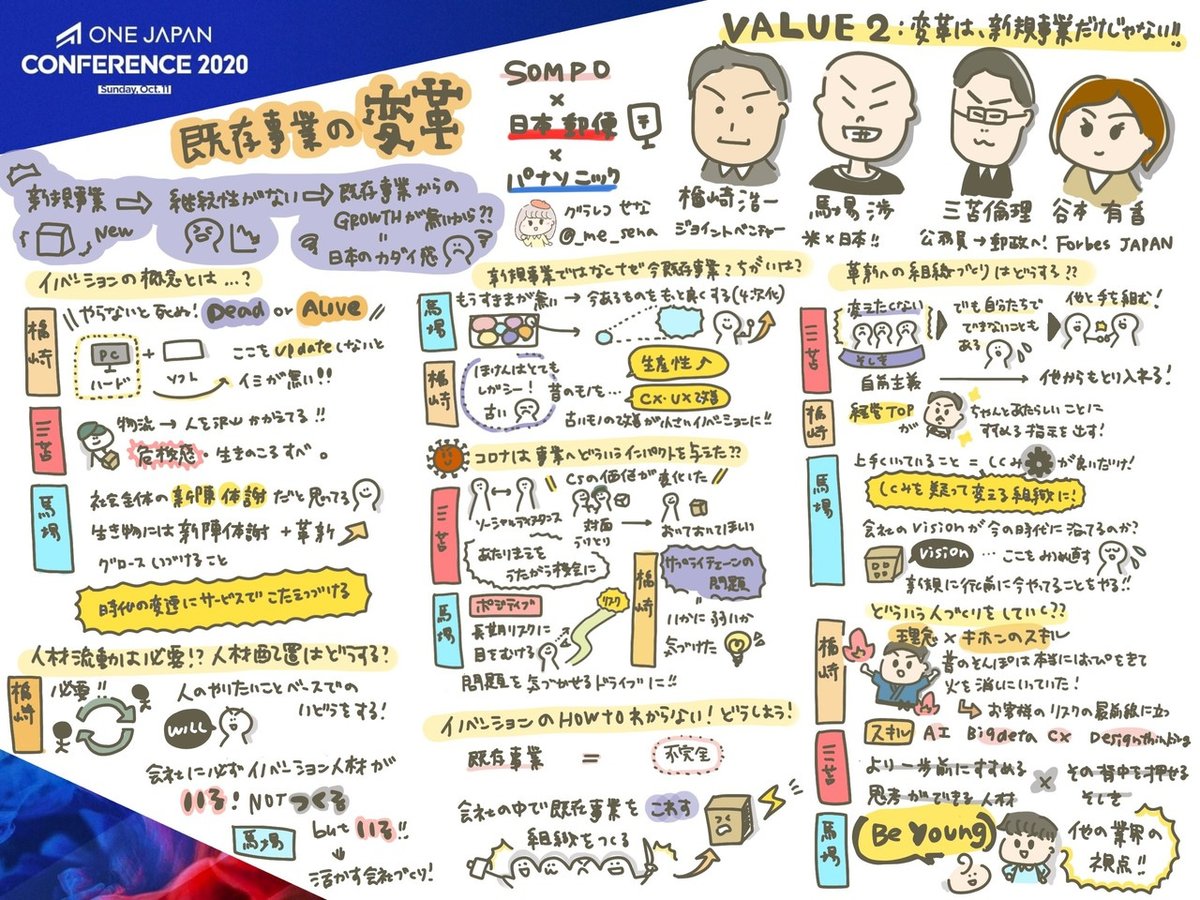 ONE JAPAN
CONFERENCE 2020
Sunday, Oct. 11
VALUE 2:変革は、新規事業だけじゃない!!
既存事業の変革
SOMPO
×
日本郵便
×
パナソニック
グラレコ せな
@_me_sena
楢崎浩一
ジョイントベンチャー
馬場 渉
米×日本!!
三苫倫理
公務員→郵政へ!
谷本 有香
Forbes JAPAN
新規事業
New
継続性がない
既存事業からの
GROWTHが無いから??
=
日本のカダイ感
イノベーションの概念とは…?
楢崎
やらないと死ぬ! Dead or Alive
PC
ハード
+
ソフト
ここをupdateしないと
イミが無い!!
三苫
物流→人を沢山かかってる!!
危機感・生きのこるすべ。
馬場
社会全体の新陳体謝だと思ってる
生き物には新陳体謝+革新
グロースしつづけること
時代の変遷にサービスでこたえつづける
人材流動は必要!? 人材配置はどうする?
楢崎
必要!!
人のやりたいことベースでの
いどうをする!
WILL
会社に必ずイノベーション人材が
いる! NOT つくる
馬場
but いる!!
活かす会社づくり!
新規事業ではなくてなぜ今既存事業?ちがいは?
馬場
もうすきまが無い→今あるものをもっと良くする(4次化)
楢崎
ほけんはとても
レガシー!
古い
昔のモノを…
生産性
CX・UX改善
古いモノの改善が小さなイノベーションに!!
コロナは事業へどういうインパクトを与えた??
三苫
CSの価値が変化した
ソーシャルディスタンス
対面
うけとり
おいておいてほしい
あたりまえを
うたがう機会に
楢崎
サプライチェーンの
問題
=
いかに弱いか
気づけた
馬場
ポジティブ
長期リスクに
目をむける
リスク
問題を気づかせるドライブに!!
イノベーションのHOW TOわからない!どうしよう!
既存事業
=
不完全
会社の中で既存事業をこわす
組織をつくる
革新への組織づくりはどうする??
三苫
変えたくない
そしき
でも自分たちで
できないことも
ある
他と手を組む!
自前主義
他からもとり入れる!
楢崎
経営TOP
が
ちゃんとあたらしいことに
すすめる指示を出す!
馬場
上手くいていること=しくみが良いだけ!
しくみを疑って変える組織に!
会社のvisionが今の時代に沿てるのか?
vision
…ここをみつめ直す
新規に行く前に今やってることをやる!!
どういう人づくりをしていく??
楢崎
理念×キホンのスキル
昔のそんぽは本当にはっぴをきて
火を消しにいっていた!
お客様のリスクの最前線に立つ
スキル AI Bigdata CX Designthinking
三苫
より一歩前にすすめる
思考ができる人材
×
その背中を押せる
そしき
馬場
Be Young
他の業界の
視点!!